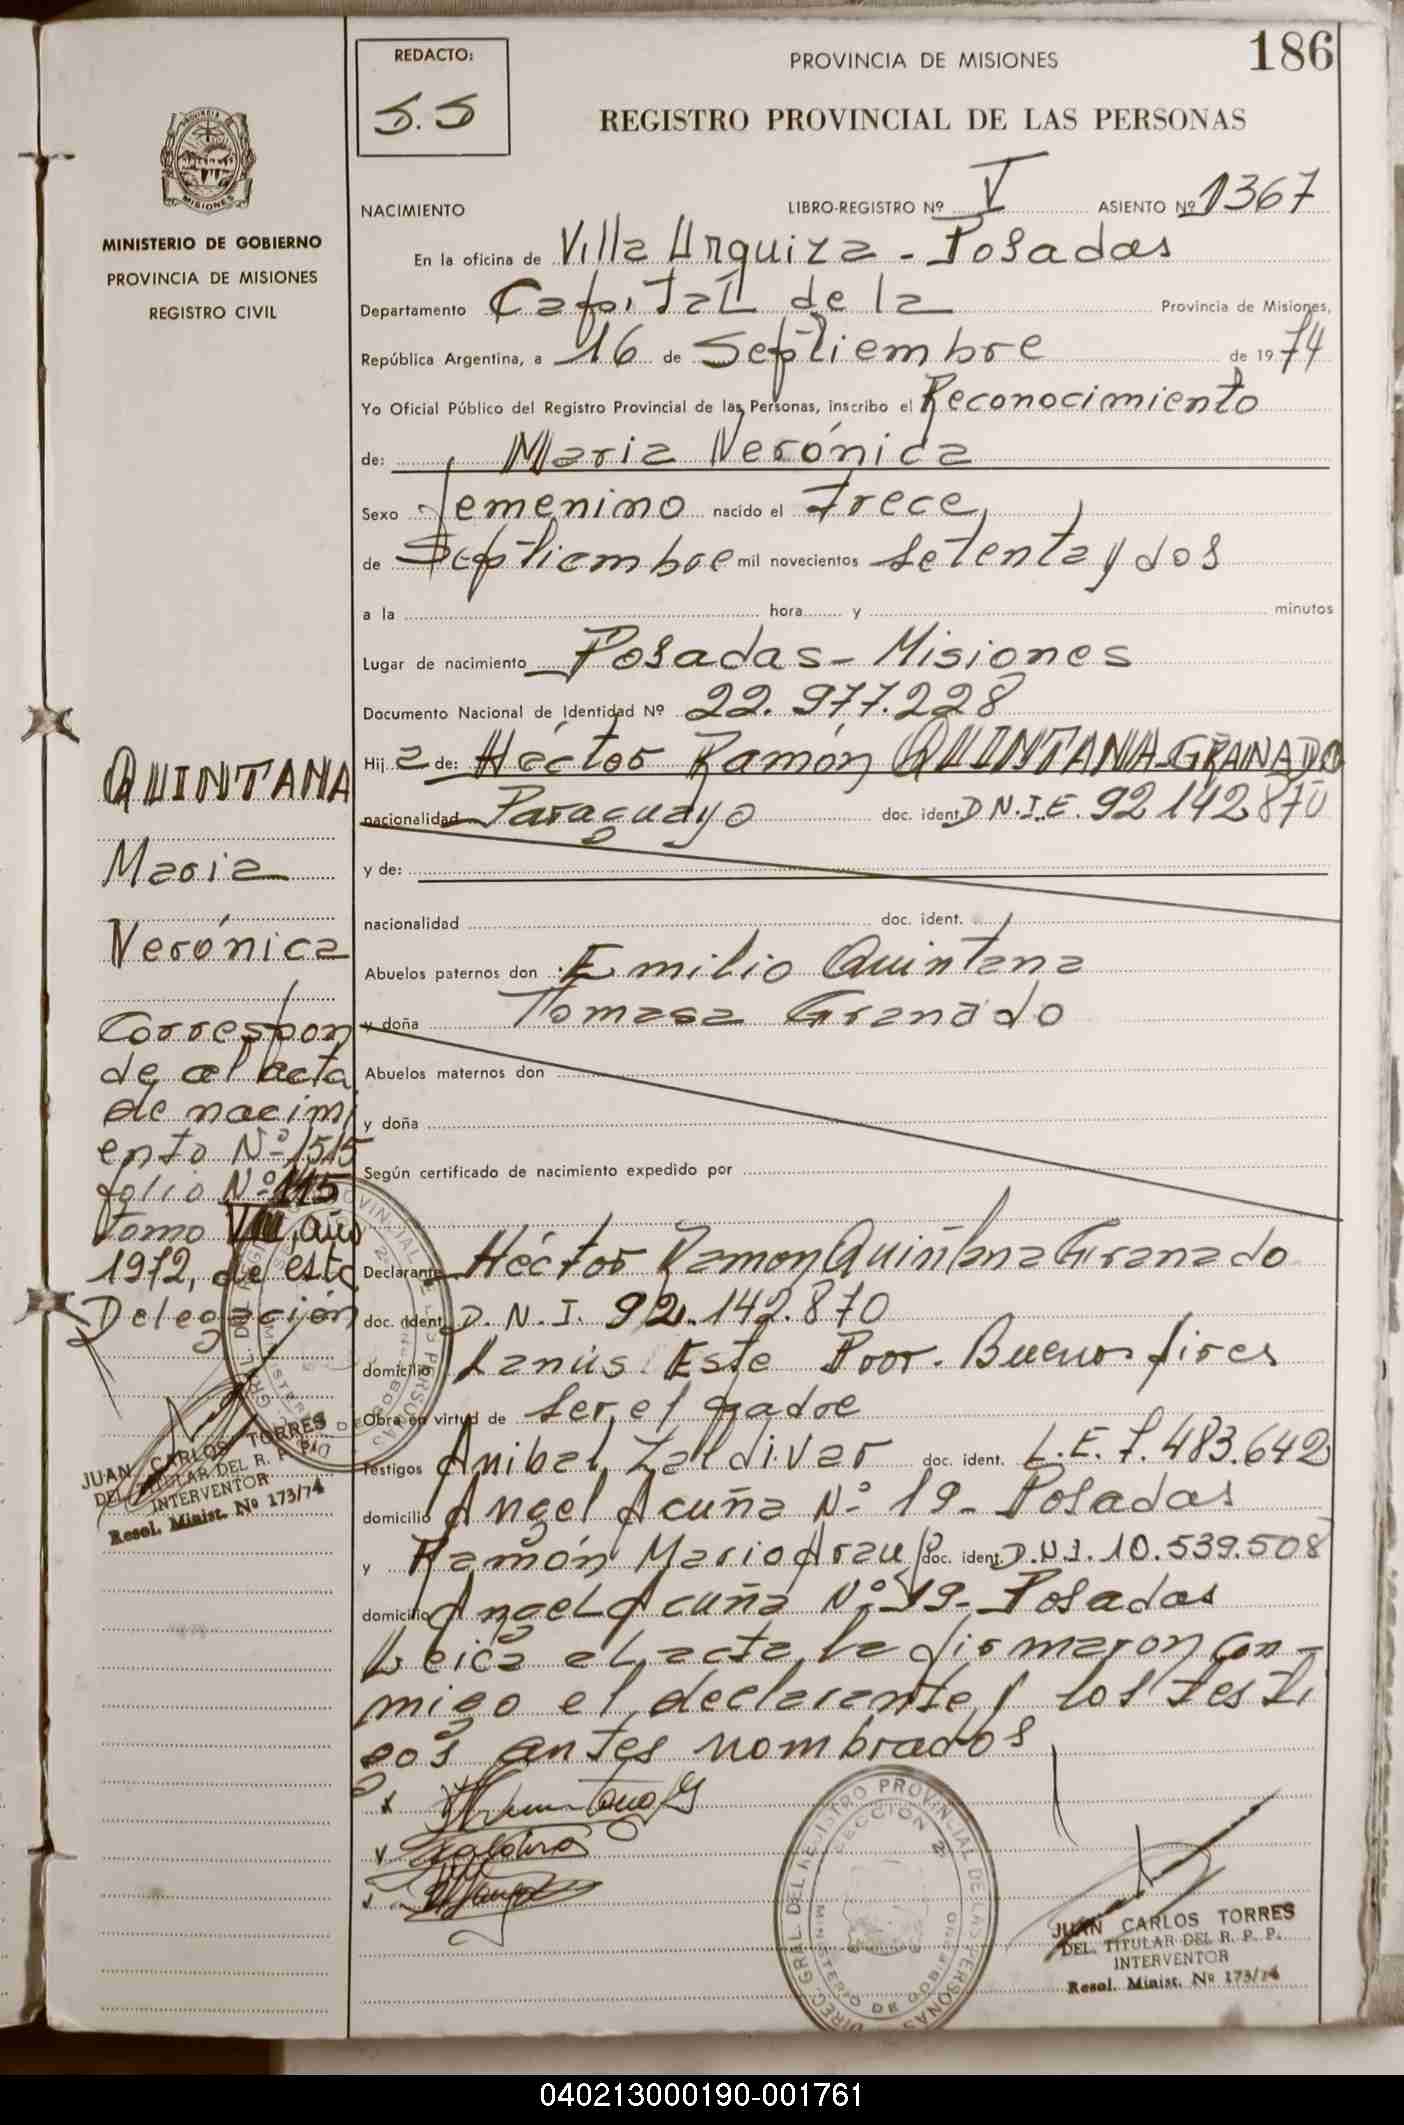 186
REDACTO:
S.S
PROVINCIA DE MISIONES
REGISTRO PROVINCIAL DE LAS PERSONAS
MISIONES
MINISTERIO DE GOBIERNO
PROVINCIA DE MISIONES
REGISTRO CIVIL
NACIMIENTO LIBRO-REGISTRO Nº V ASIENTO Nº 1367
En la oficina de Villa Urquiza - Posadas
Departamento Capital de la Provincia de Misiones,
República Argentina, a 16 de Septiembre de 1974
Yo Oficial Público del Registro Provincial de las Personas, inscribo el Reconocimiento
de: Maria Verónica
Sexo femenino nacido el trece
de Septiembre mil novecientos setenta y dos
a la hora y minutos
Lugar de nacimiento Posadas - Misiones
Documento Nacional de Identidad Nº 22.977.228
Hij a de: Héctor Ramón QUINTANA GRANADO
nacionalidad Paraguayo doc. ident. D N.I.E. 92 142 870
y de:
nacionalidad doc. ident.
Abuelos paternos don Emilio Quintana
y doña Tomasa Granado
Abuelos maternos don
y doña
Según certificado de nacimiento expedido por
Declarante Héctor Ramon Quintana Granado
doc. ident. D. N. I. 92.142.870
domicilio Lanús Este Prov. Buenos Aires
Obra en virtud de ser el padre
Testigos Anibal Zaldivar doc. ident. L.E. 7.483.642
domicilio Angel Acuña Nº 19 - Posadas
y Ramón Mario doc. ident. D.N.I. 10.539.508
domicilio Angel Acuña Nº 19 - Posadas
Leida el acta la firmaron con-
migo el declarante y los testi
gos antes nombrados
QUINTANA
Maria
Verónica
Correspon
de al acta
de nacimi
ento Nº 1515
folio Nº 115
tomo VIII, año
1972, de esta
Delegación
JUAN CARLOS TORRES
DEL. TITULAR DEL R. P. P.
INTERVENTOR
Resol. Minist. Nº 173/74
DIREC. GRAL. DEL REGISTRO PROVINCIAL DE LAS PERSONAS
SECCION 2ª
MINISTERIO DE GOBIERNO
JUAN CARLOS TORRES
DEL. TITULAR DEL R. P. P.
INTERVENTOR
Resol. Minist. Nº 173/74
040213000190-001761